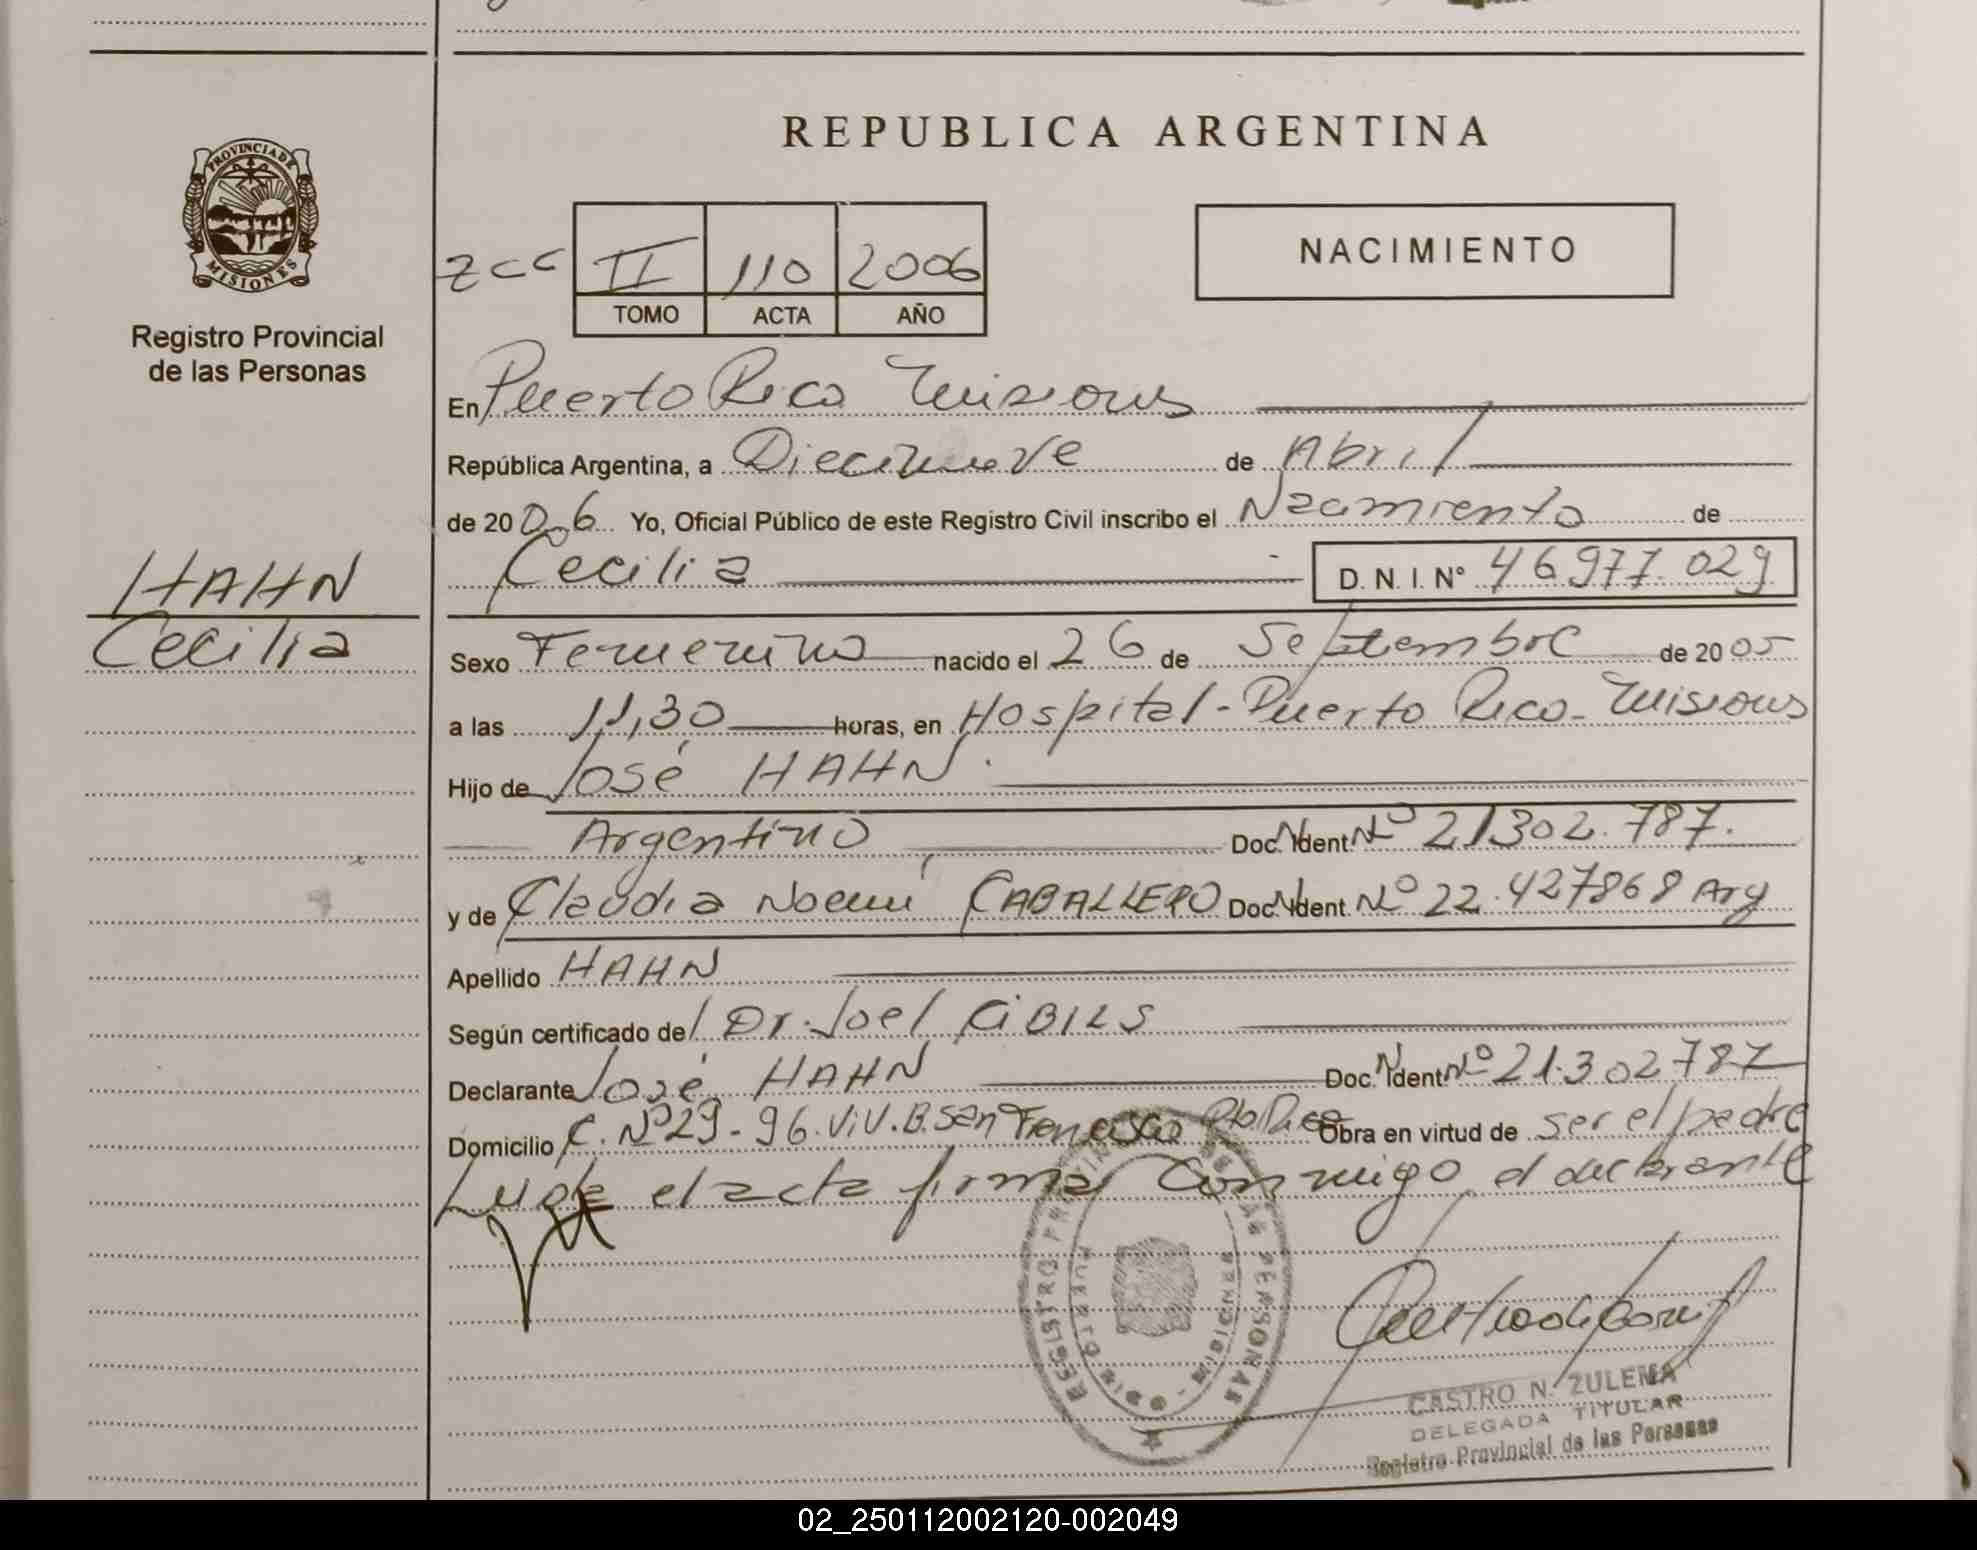 REPUBLICA ARGENTINA
PROVINCIA DE MISIONES
Registro Provincial
de las Personas
zcc II 110 2006
TOMO ACTA AÑO
NACIMIENTO
En Puerto Rico Misiones
República Argentina, a Diecinueve de Abril
de 2006 Yo, Oficial Público de este Registro Civil inscribo el Nacimiento de
Cecilia D. N. I. Nº 46977.029
HAHN
Cecilia
Sexo Femenino nacido el 26 de Septiembre de 2005
a las 11,30 horas, en Hospital - Puerto Rico - Misiones
Hijo de José HAHN.
Argentino Doc. Ident. Nº 21302.787.
y de Claudia Noemí CABALLERO Doc. Ident. Nº 22.427868 Arg
Apellido HAHN
Según certificado del Dr. Joel CIBILS
Declarante José HAHN Doc. Ident. Nº 21.302787
Domicilio C. Nº 29 - 96. Viv. B. San Francisco Pto Rico Obra en virtud de ser el padre
Leida el acta firma conmigo el declarante
REGISTRO PROVINCIAL DE LAS PERSONAS
PUERTO RICO MISIONES
CASTRO N. ZULEMA
DELEGADA TITULAR
Registro Provincial de las Personas
02_250112002120-002049